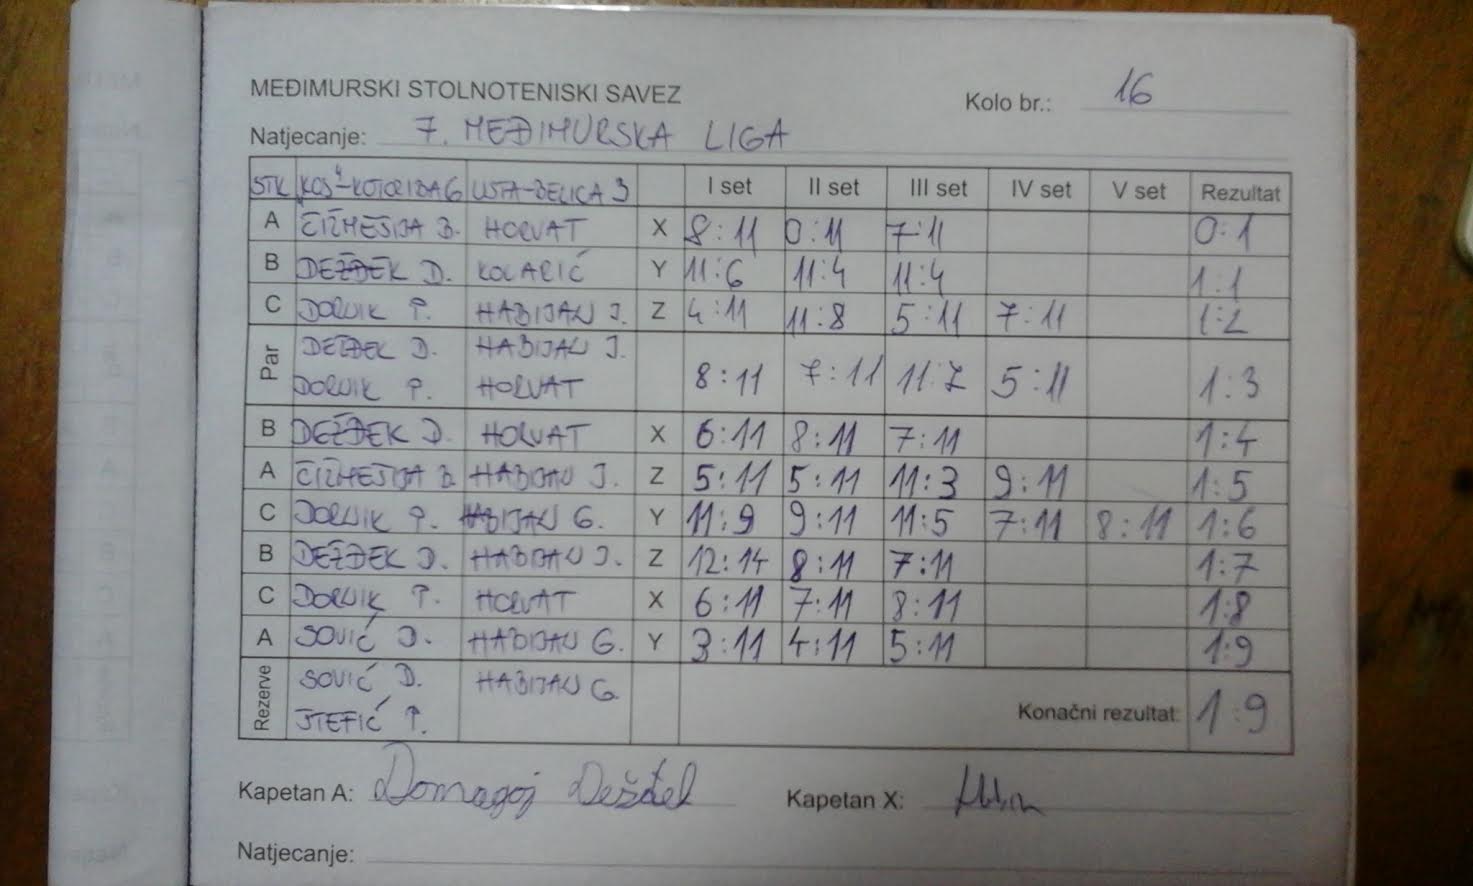 MEĐIMURSKI STOLNOTENISKI SAVEZ
Kolo br.: 16
Natjecanje: 7. MEĐIMURSKA LIGA
STK KOŠ4-KOTORIBA 6 LISTA-BELICA 3 I set II set III set IV set V set Rezultat
A ČIŽMEŠIJA B. HORVAT X 8:11 0:11 7:11 0:1
B DEŽĐEK D. KOLARIĆ Y 11:6 11:4 11:4 1:1
C DORVIK P. HABIJAN J. Z 4:11 11:8 5:11 7:11 1:2
Par DEŽĐEK D. HABIJAN J.
DORVIK P. HORVAT 8:11 7:11 11:7 5:11 1:3
B DEŽĐEK D. HORVAT X 6:11 8:11 7:11 1:4
A ČIŽMEŠIJA B. HABIJAN J. Z 5:11 5:11 11:3 9:11 1:5
C DORVIK P. HABIJAN G. Y 11:9 9:11 11:5 7:11 8:11 1:6
B DEŽĐEK D. HABIJAN J. Z 12:14 8:11 7:11 1:7
C DORVIK P. HORVAT X 6:11 7:11 8:11 1:8
A SOVIĆ D. HABIJAN G. Y 3:11 4:11 5:11 1:9
Rezerve SOVIĆ D. HABIJAN G.
ŠTEFIĆ P. Konačni rezultat: 1:9
Kapetan A: Domagoj Dežđek Kapetan X:
Natjecanje: